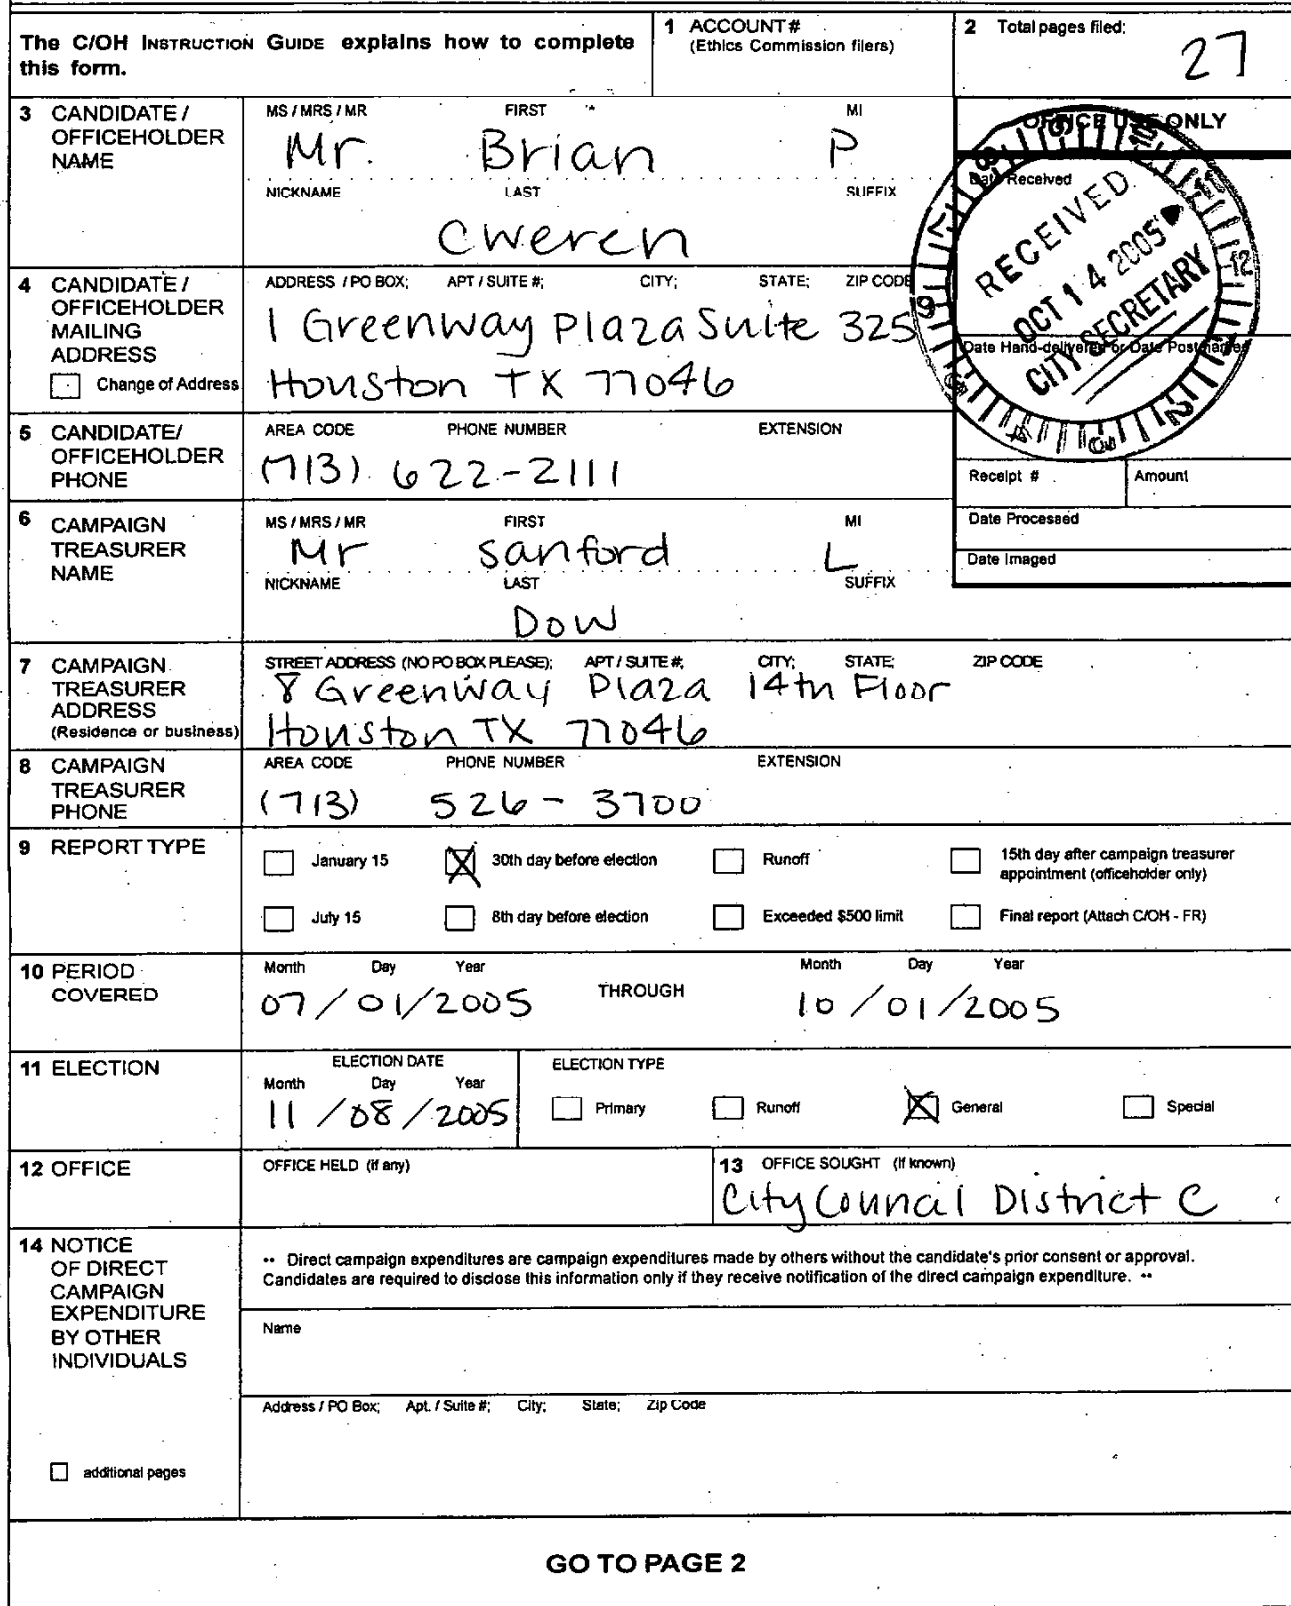 The C/OH INSTRUCTION GUIDE explains how to complete this form.
1 ACCOUNT #
(Ethics Commission filers)
2 Total pages filed:
27
3 CANDIDATE / OFFICEHOLDER NAME
MS / MRS / MR FIRST MI
Mr. Brian P
NICKNAME LAST SUFFIX
Cweren
OFFICE USE ONLY
Date Received
RECEIVED
OCT 14 2005
CITY SECRETARY
Date Hand-delivered or Date Postmarked
Receipt # Amount
Date Processed
Date Imaged
4 CANDIDATE / OFFICEHOLDER MAILING ADDRESS
Change of Address
ADDRESS / PO BOX; APT / SUITE #; CITY; STATE; ZIP CODE
1 Greenway Plaza Suite 325
Houston TX 77046
5 CANDIDATE/ OFFICEHOLDER PHONE
AREA CODE PHONE NUMBER EXTENSION
(713) 622-2111
6 CAMPAIGN TREASURER NAME
MS / MRS / MR FIRST MI
Mr Sanford L
NICKNAME LAST SUFFIX
Dow
7 CAMPAIGN TREASURER ADDRESS
(Residence or business)
STREET ADDRESS (NO PO BOX PLEASE); APT / SUITE #; CITY; STATE; ZIP CODE
8 Greenway Plaza 14th Floor
Houston TX 77046
8 CAMPAIGN TREASURER PHONE
AREA CODE PHONE NUMBER EXTENSION
(713) 526-3700
9 REPORT TYPE
January 15 30th day before election Runoff 15th day after campaign treasurer appointment (officeholder only)
July 15 8th day before election Exceeded $500 limit Final report (Attach C/OH - FR)
10 PERIOD COVERED
Month Day Year Month Day Year
07/01/2005 THROUGH 10/01/2005
11 ELECTION
ELECTION DATE
Month Day Year
11/08/2005
ELECTION TYPE
Primary Runoff General Special
12 OFFICE
OFFICE HELD (if any)
13 OFFICE SOUGHT (If known)
City Council District C
14 NOTICE OF DIRECT CAMPAIGN EXPENDITURE BY OTHER INDIVIDUALS
additional pages
•• Direct campaign expenditures are campaign expenditures made by others without the candidate's prior consent or approval.
Candidates are required to disclose this information only if they receive notification of the direct campaign expenditure. ••
Name
Address / PO Box; Apt. / Suite #; City; State; Zip Code
GO TO PAGE 2